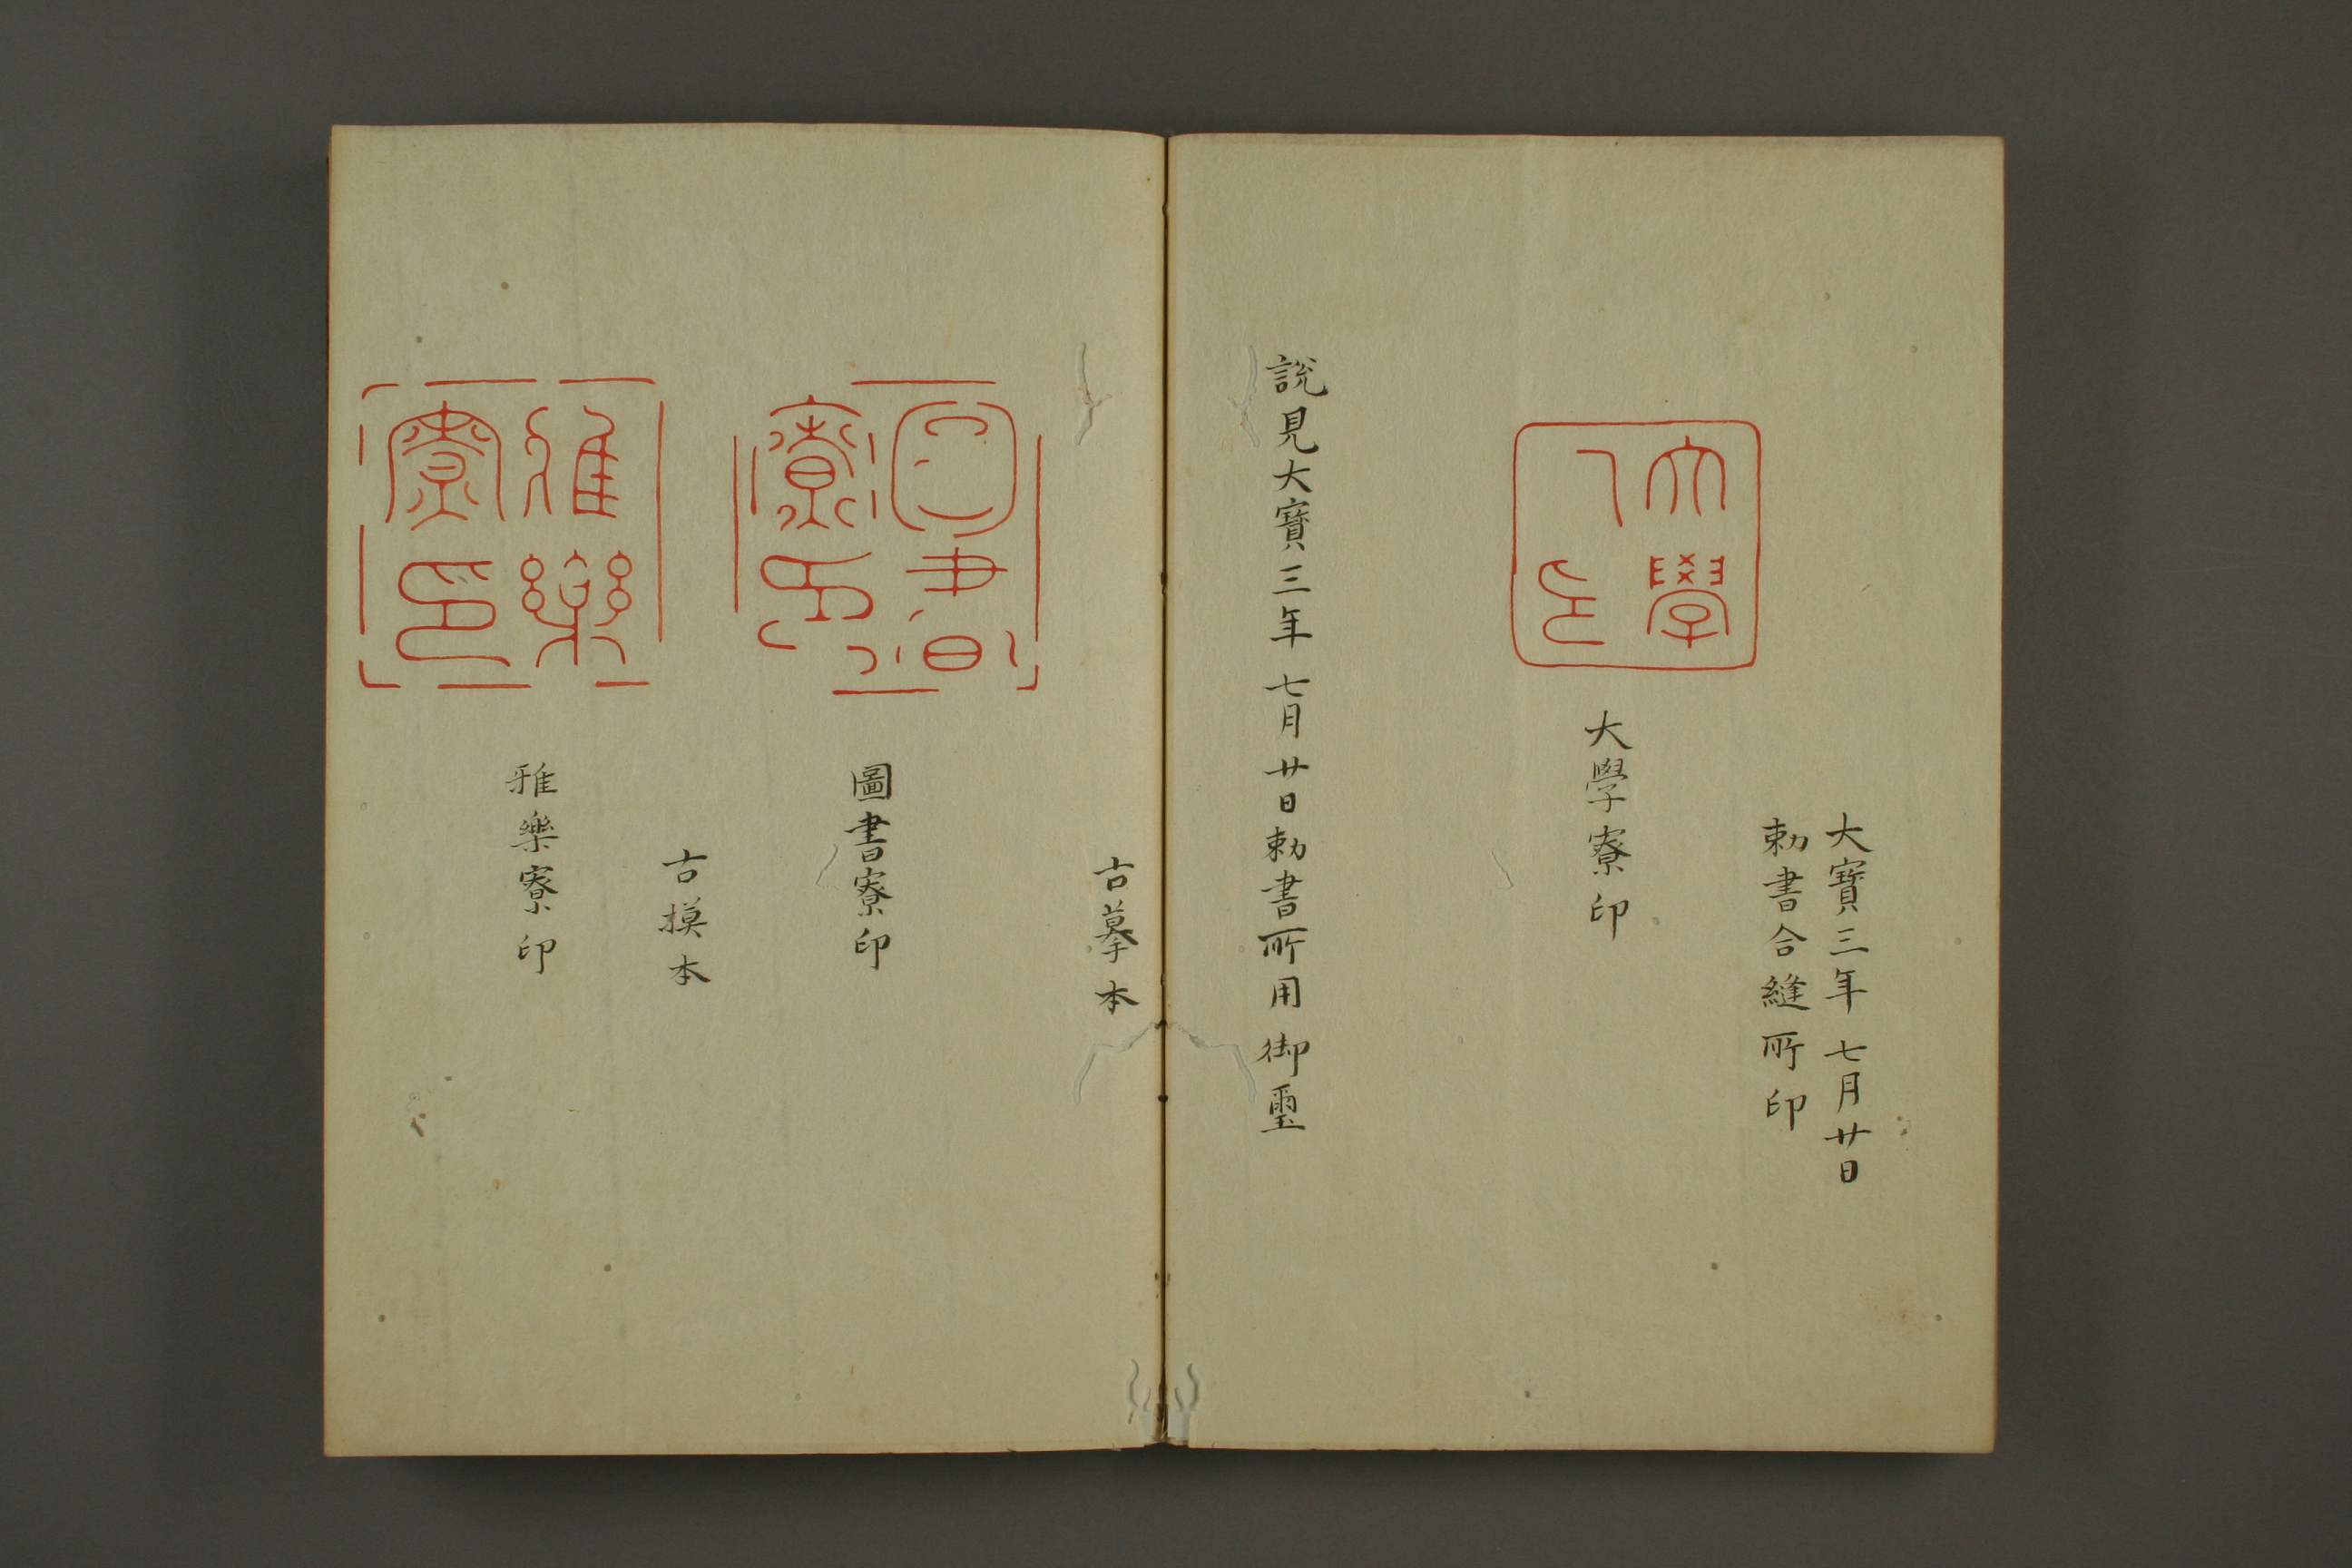 大寶三年七月廿日
勅書合縫所印
大學
印
大學寮印
說見大寶三年七月廿日勅書所用御璽
古摹本
書
寮印
圖書寮印
古摸本
雅樂
寮印
雅樂寮印